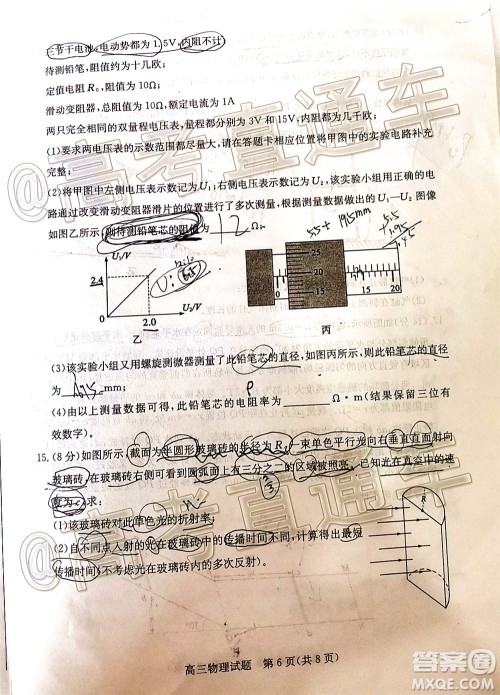 三节干电池,电动势都为1.5V,内阻不计
待测铅笔,阻值约为十几欧;
定值电阻R₀,阻值为10Ω;
滑动变阻器,总阻值为10Ω,额定电流为1A
两只完全相同的双量程电压表,量程都分别为3V和15V;内阻都为几千欧;
(1)要求两电压表的示数范围都尽量大,请在答题卡相应位置将甲图中的实验电路补充
完整;
(2)将甲图中左侧电压表示数记为U₁;右侧电压表示数记为U₂,该实验小组用正确的电
路通过改变滑动变阻器滑片的位置进行了多次测量,根据测量数据做出的U₁—U₂图像
如图乙所示,则待测铅笔芯的阻值为 12 Ω。
U₁/V
2.4
2.0
U₂/V
乙
25
20
15
0
15
20
丙
(3)该实验小组又用螺旋测微器测量了此铅笔芯的直径,如图丙所示,则此铅笔芯的直径
为 mm;
(4)由以上测量数据可得,此铅笔芯的电阻率为 Ω·m(结果保留三位有
效数字)。
15.(8分)如图所示,截面为半圆形玻璃砖的半径为R,一束单色平行光向右垂直直面射向
玻璃砖,在玻璃砖右侧可看到圆弧面上有三分之二的区域被照亮。已知光在真空中的速
度为c,求:
(1)该玻璃砖对此单色光的折射率;
(2)自不同点入射的光在玻璃砖中的传播时间不同,计算得出最短
传播时间(不考虑光在玻璃砖内的多次反射)。
R
高三物理试题 第6页(共8页)
@高考直通车
@高考直通车
答案圈
MXQE.COM